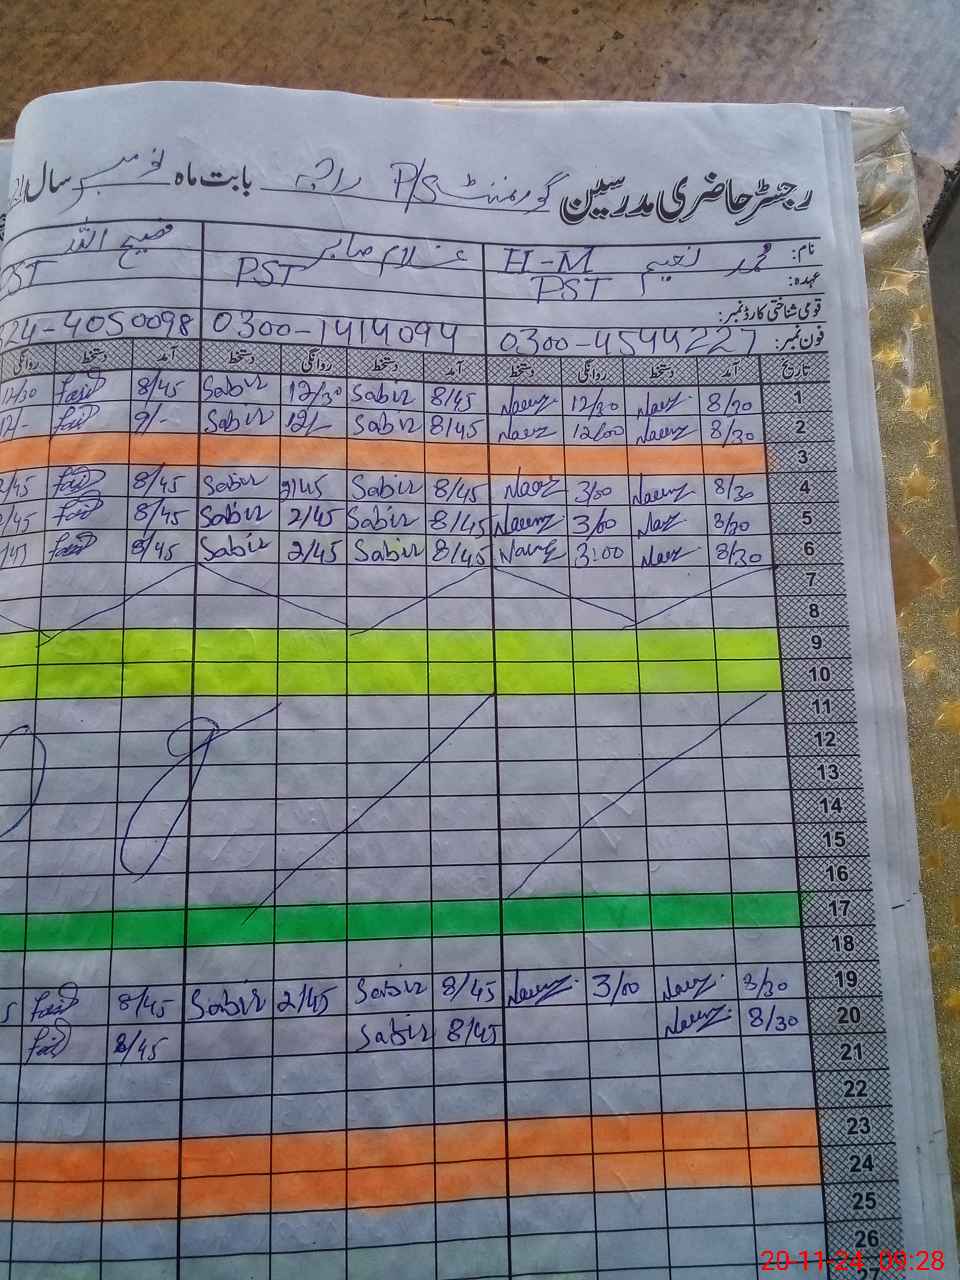 رجسٹر حاضری مدرسین گورنمنٹ P/S بابت ماہ نومبر سال
نام: محمد نعیم H-M غلام صابر فصیح اللہ
عہدہ: PST PST PST
قومی شناختی کارڈ نمبر:
فون نمبر: 0300-4544227 0300-1414094 24-4050098
تاریخ آمد دستخط روانگی دستخط آمد دستخط روانگی دستخط آمد دستخط روانگی
1 8/30 Naeem 12/30 Naeem 8/45 Sabir 12/30 Sabir 8/45 12/30
2 8/30 Naeem 12/00 Naeem 8/45 Sabir 12/- Sabir 9/- 12/-
3
4 8/30 Naeem 3/00 Naeem 8/45 Sabir 2/45 Sabir 8/45 2/45
5 8/30 Naeem 3/00 Naeem 8/45 Sabir 2/45 Sabir 8/45 2/45
6 8/30 Naeem 3:00 Naeem 8/45 Sabir 2/45 Sabir 8/45 /45
7
8
9
10
11
12
13
14
15
16
17
18
19 8/30 Naeem 3/00 Naeem 8/45 Sabir 2/45 Sabir 8/45
20 8/30 Naeem 8/45 Sabir 8/45
21
22
23
24
25
26
27
20-11-24 09:28